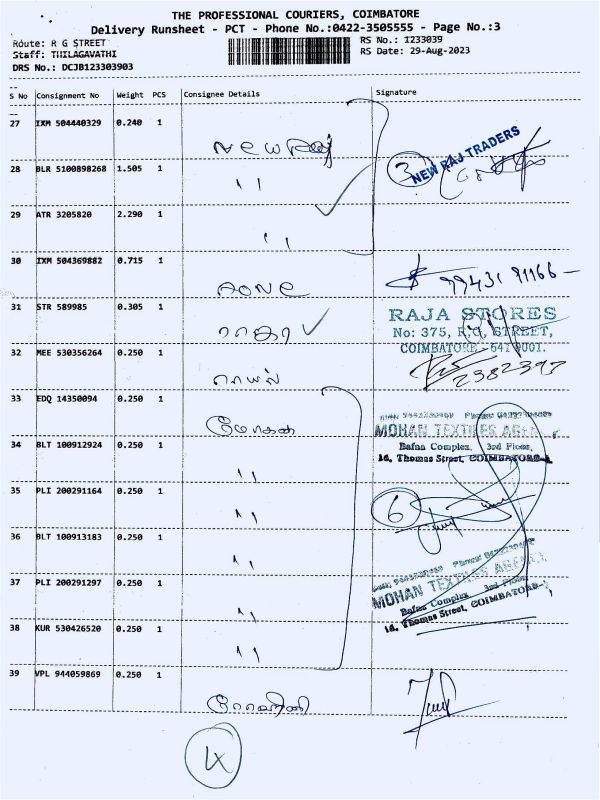 THE PROFESSIONAL COURIERS, COIMBATORE
Delivery Runsheet - PCT - Phone No.:0422-3505555 - Page No.:3
Route: R G STREET
RS No.: I233039
Staff: THILAGAVATHI
RS Date: 29-Aug-2023
DRS No.: DCJB123303903
S No Consignment No Weight PCS Consignee Details Signature
27 IXM 504440329 0.240 1
New Raj
3
NEW RAJ TRADERS
28 BLR 5100898268 1.505 1
〃
29 ATR 3205820 2.290 1
〃
30 IXM 504369882 0.715 1
AONE
99431 91166
31 STR 589985 0.305 1
ராஜா
RAJA STORES
No: 375, R.G. STREET,
COIMBATORE - 641 001.
32 MEE 530356264 0.250 1
2382397
33 EDQ 14350094 0.250 1
மோகன்
MOHAN TEXTILES AGENCY
Bafna Complex, 3rd Floor,
16, Thomas Street, COIMBATORE-1.
34 BLT 100912924 0.250 1
〃
35 PLI 200291164 0.250 1
〃
6
36 BLT 100913183 0.250 1
〃
37 PLI 200291297 0.250 1
〃
MOHAN TEXTILES AGENCY
Bafna Complex 3rd Floor,
16, Thomas Street, COIMBATORE-1.
38 KUR 530426520 0.250 1
〃
39 VPL 944059869 0.250 1